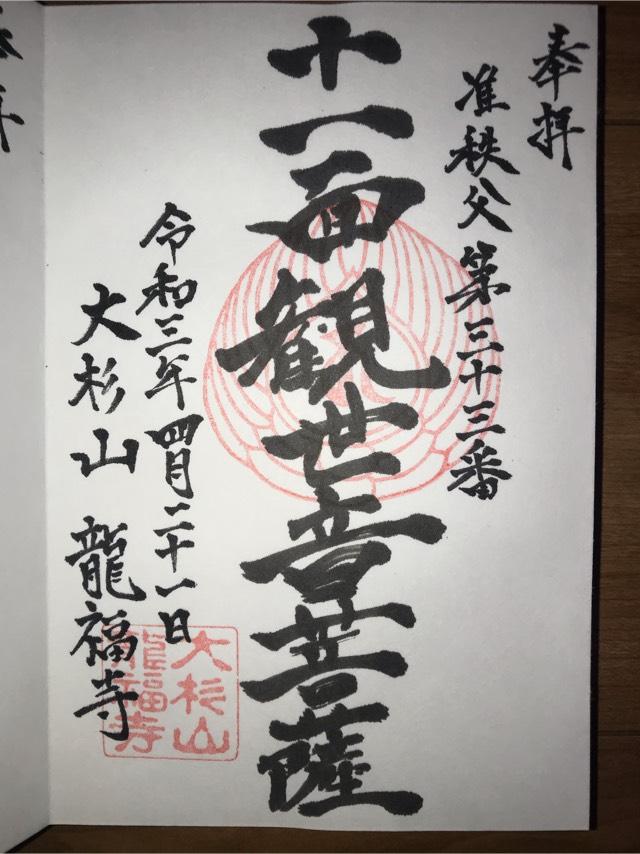 奉拝
准秩父第三十三番
十一面観世音菩薩
令和三年四月二十一日
大杉山 龍福寺
大杉山
龍福寺